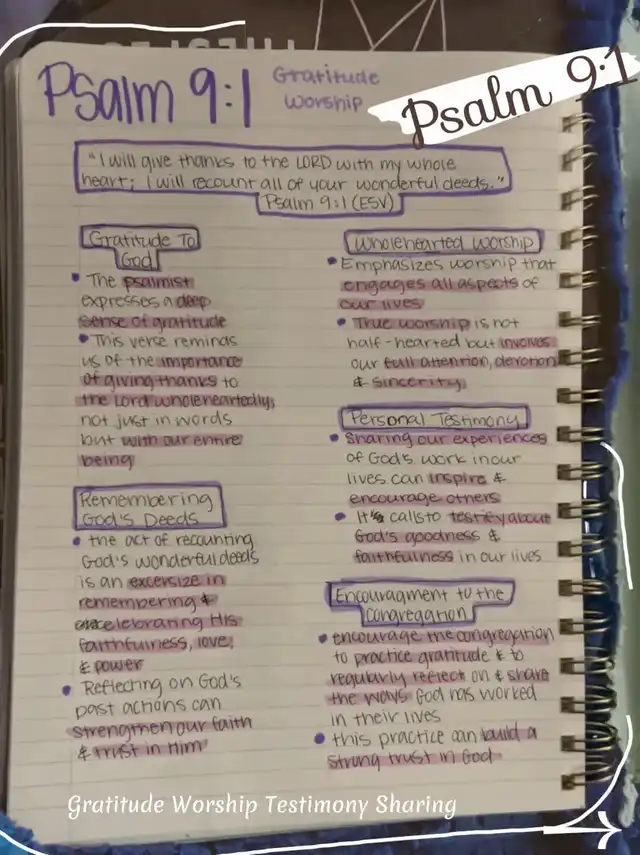 Psalm 9:1
Gratitude
Worship
Psalm 9:1
"I will give thanks to the LORD with my whole
heart; I will recount all of your wonderful deeds."
Psalm 9:1 (ESV)
Gratitude To
God
• The psalmist
expresses a deep
sense of gratitude
• This verse reminds
us of the importance
of giving thanks to
the Lord wholeheartedly,
not just in words
but with our entire
being
Remembering
God's Deeds
• the act of recounting
God's wonderful deeds
is an excersize in
remembering &
celebrating His
faithfulness, love,
& power
• Reflecting on God's
past actions can
strengthen our faith
& trust in Him
Wholehearted Worship
• Emphasizes worship that
engages all aspects of
our lives
• True worship is not
half-hearted but involves
our full attention, devotion
& sincerity
Personal Testimony
• Sharing our experiences
of God's work in our
lives can inspire &
encourage others
• It calls to testify about
God's goodness &
faithfulness in our lives
Encouragment to the
Congregation
• encourage the congregation
to practice gratitude & to
regularly reflect on & share
the ways God has worked
in their lives
• this practice can build a
strong trust in God
Gratitude Worship Testimony Sharing